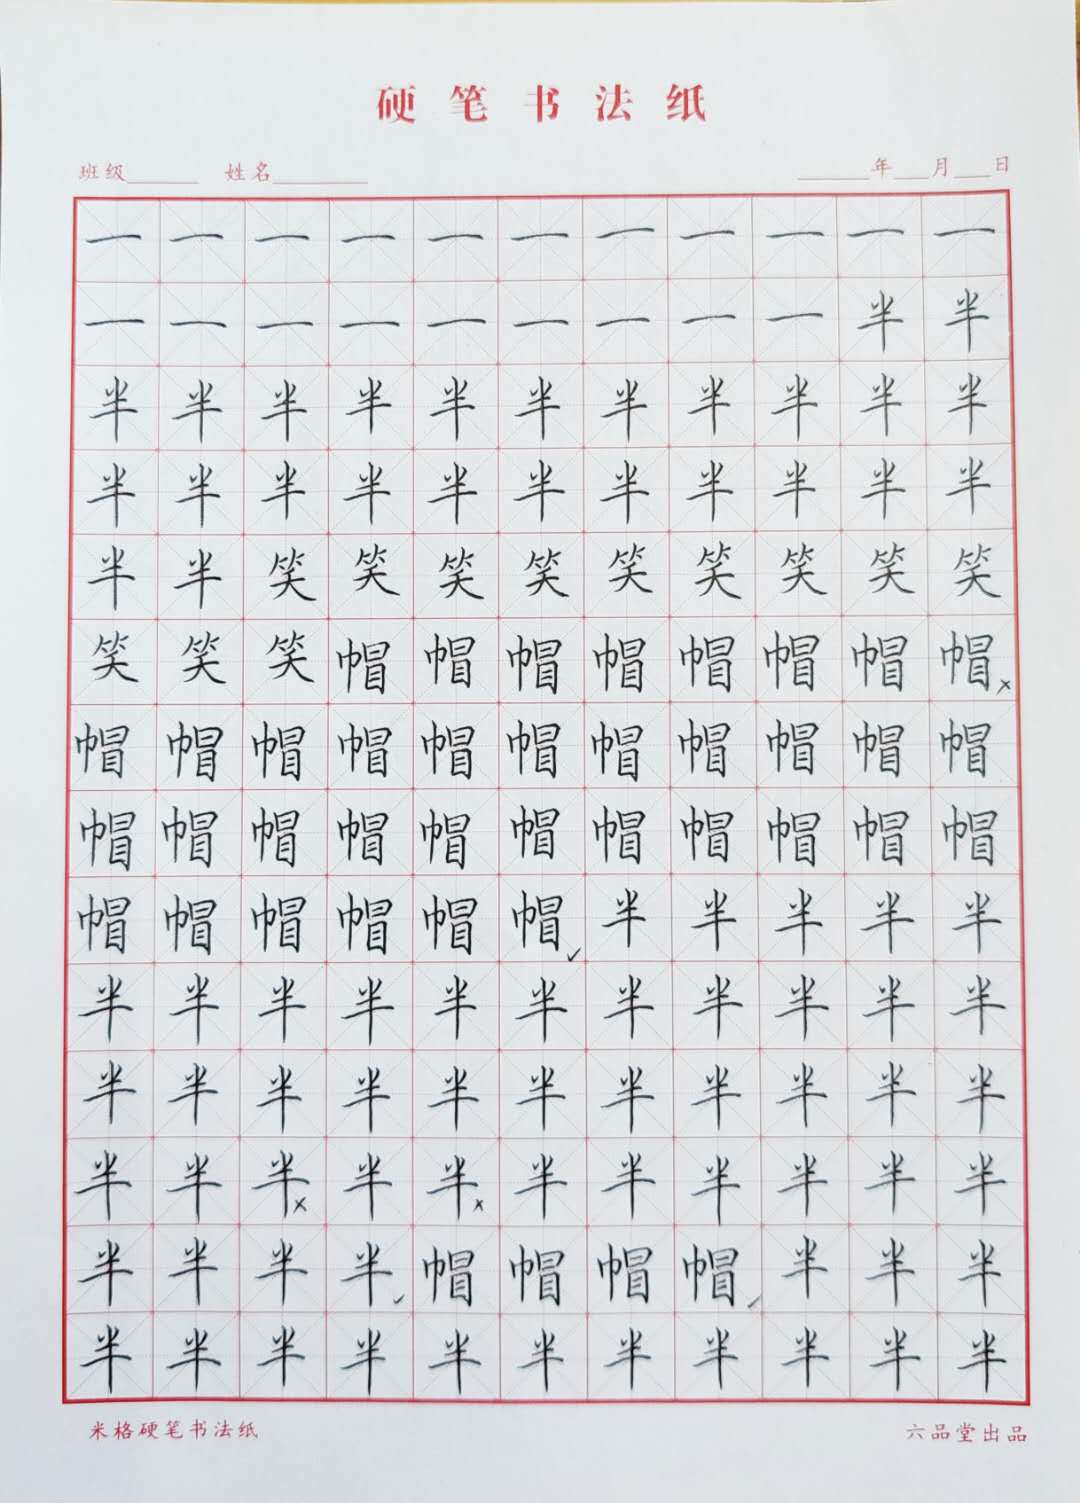 硬笔书法纸
班级 姓名 年 月 日
一一一一一一一一一一一
一一一一一一一一一半半
半半半半半半半半半半半
半半半半半半半半半半半
半半笑笑笑笑笑笑笑笑笑
笑笑笑帽帽帽帽帽帽帽帽×
帽帽帽帽帽帽帽帽帽帽帽
帽帽帽帽帽帽帽帽帽帽帽
帽帽帽帽帽帽✓半半半半半
半半半半半半半半半半半
半半半半半半半半半半半
半半半×半半×半半半半半半
半半半半✓帽帽帽帽✓半半半
半半半半半半半半半半半
米格硬笔书法纸 六品堂出品